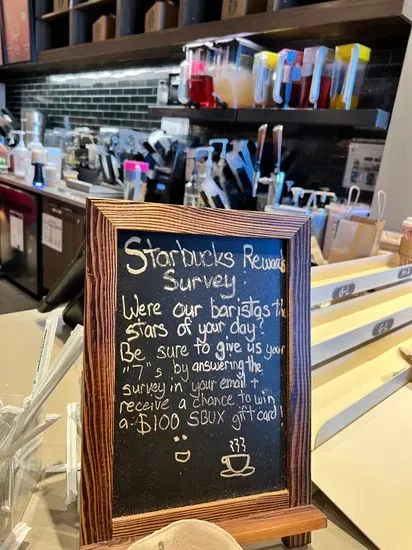 Starbucks Rewards
Survey
Were our baristas the
stars of your day?
Be sure to give us your
"7"s by answering the
survey in your email +
receive a chance to win
a $100 SBUX gift card!